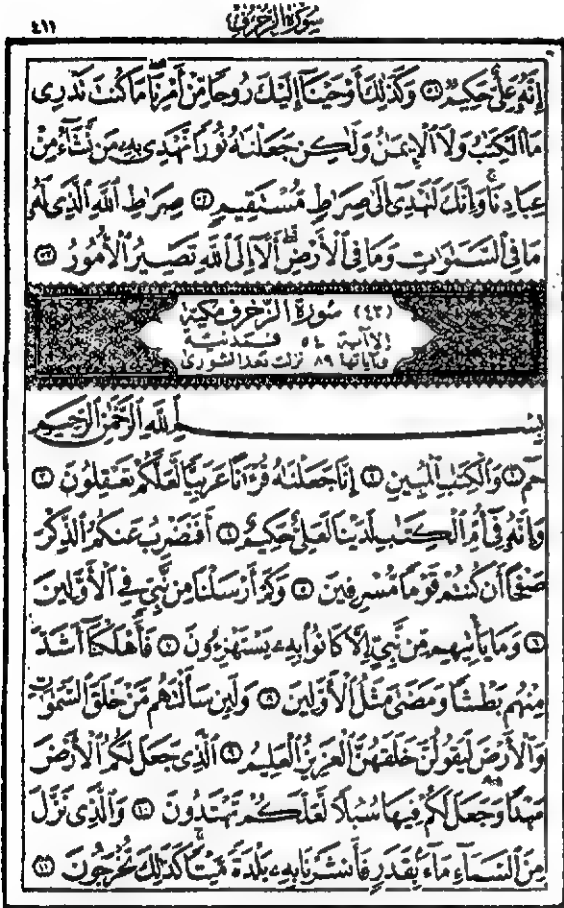 سورة الزخرف
٤١١
إِنَّهُۥ عَلِىٌّ حَكِيمٌ ﴿٥١﴾ وَكَذَٰلِكَ أَوْحَيْنَآ إِلَيْكَ رُوحًا مِّنْ أَمْرِنَا مَا كُنتَ تَدْرِى
مَا ٱلْكِتَٰبُ وَلَا ٱلْإِيمَٰنُ وَلَٰكِن جَعَلْنَٰهُ نُورًا نَّهْدِى بِهِۦ مَن نَّشَآءُ مِنْ
عِبَادِنَا وَإِنَّكَ لَتَهْدِىٓ إِلَىٰ صِرَٰطٍ مُّسْتَقِيمٍ ﴿٥٢﴾ صِرَٰطِ ٱللَّهِ ٱلَّذِى لَهُۥ
مَا فِى ٱلسَّمَٰوَٰتِ وَمَا فِى ٱلْأَرْضِ أَلَآ إِلَى ٱللَّهِ تَصِيرُ ٱلْأُمُورُ ﴿٥٣﴾
(٤٣) سورة الزخرف مكية
إلا آية ٥٤ فمدنية
وآياتها ٨٩ نزلت بعد الشورى
بِسْمِ ٱللَّهِ ٱلرَّحْمَٰنِ ٱلرَّحِيمِ
حمٓ ﴿١﴾ وَٱلْكِتَٰبِ ٱلْمُبِينِ ﴿٢﴾ إِنَّا جَعَلْنَٰهُ قُرْءَٰنًا عَرَبِيًّا لَّعَلَّكُمْ تَعْقِلُونَ ﴿٣﴾
وَإِنَّهُۥ فِىٓ أُمِّ ٱلْكِتَٰبِ لَدَيْنَا لَعَلِىٌّ حَكِيمٌ ﴿٤﴾ أَفَنَضْرِبُ عَنكُمُ ٱلذِّكْرَ
صَفْحًا أَن كُنتُمْ قَوْمًا مُّسْرِفِينَ ﴿٥﴾ وَكَمْ أَرْسَلْنَا مِن نَّبِىٍّ فِى ٱلْأَوَّلِينَ
﴿٦﴾ وَمَا يَأْتِيهِم مِّن نَّبِىٍّ إِلَّا كَانُوا۟ بِهِۦ يَسْتَهْزِءُونَ ﴿٧﴾ فَأَهْلَكْنَآ أَشَدَّ
مِنْهُم بَطْشًا وَمَضَىٰ مَثَلُ ٱلْأَوَّلِينَ ﴿٨﴾ وَلَئِن سَأَلْتَهُم مَّنْ خَلَقَ ٱلسَّمَٰوَٰتِ
وَٱلْأَرْضَ لَيَقُولُنَّ خَلَقَهُنَّ ٱلْعَزِيزُ ٱلْعَلِيمُ ﴿٩﴾ ٱلَّذِى جَعَلَ لَكُمُ ٱلْأَرْضَ
مَهْدًا وَجَعَلَ لَكُمْ فِيهَا سُبُلًا لَّعَلَّكُمْ تَهْتَدُونَ ﴿١٠﴾ وَٱلَّذِى نَزَّلَ
مِنَ ٱلسَّمَآءِ مَآءًۢ بِقَدَرٍ فَأَنشَرْنَا بِهِۦ بَلْدَةً مَّيْتًا كَذَٰلِكَ تُخْرَجُونَ ﴿١١﴾